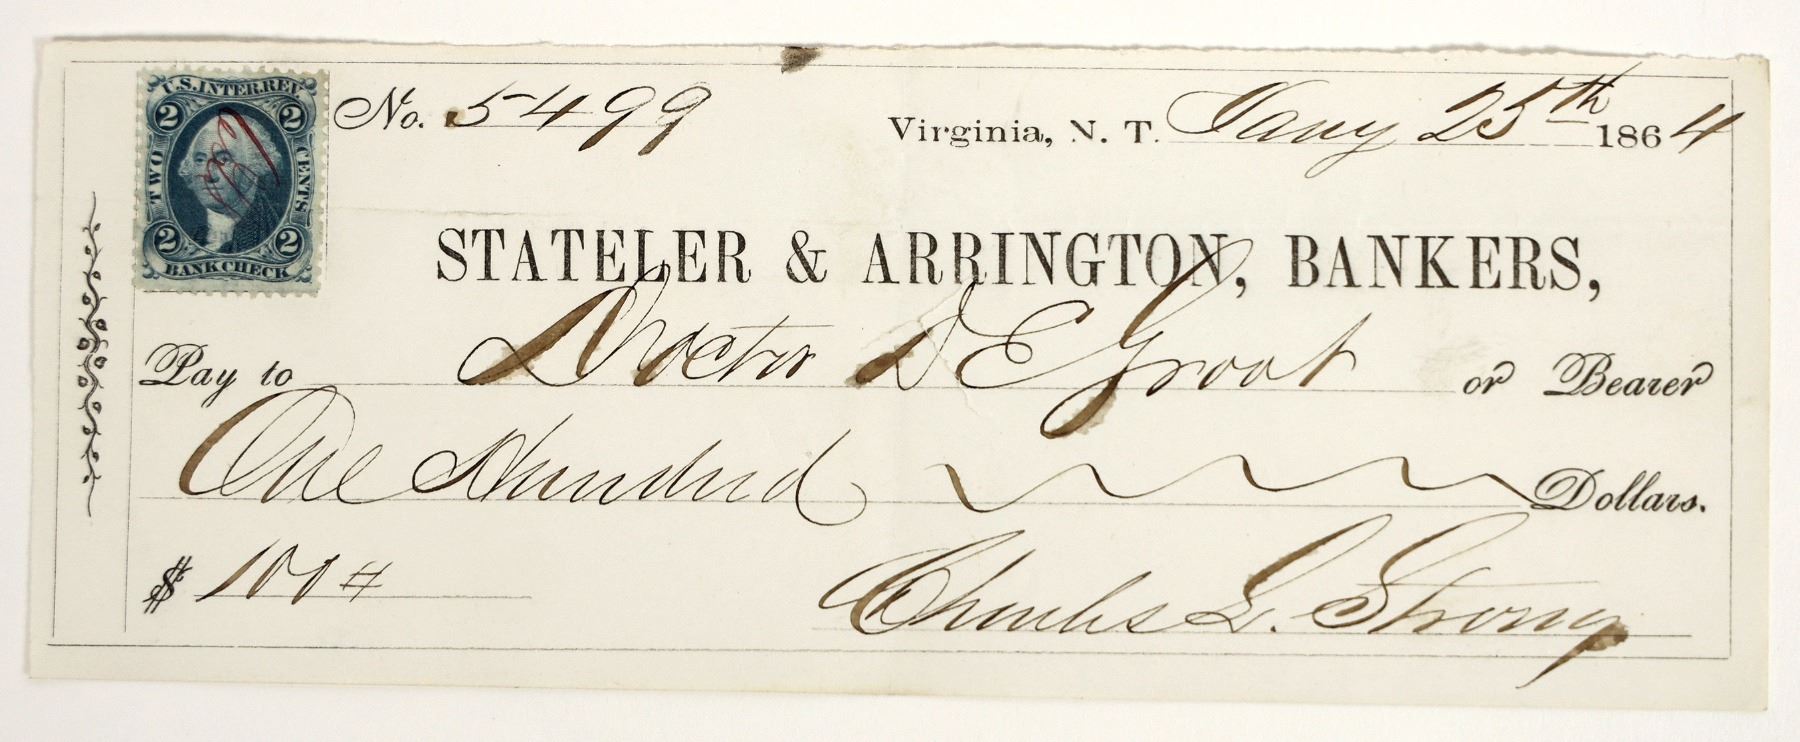 U.S. INTER. REV.
2 2
TWO CENTS
2 2
BANK CHECK
No. 5499
Virginia, N. T. Jany 25th 1864
STATELER & ARRINGTON, BANKERS,
Pay to Doctor DE Groot or Bearer
One Hundred Dollars.
$ 100
Charles L. Strong